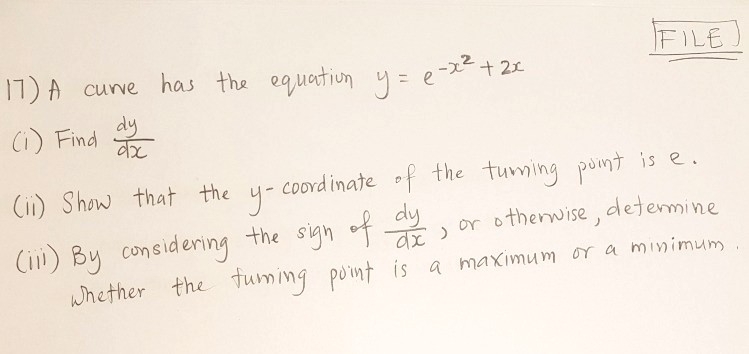 FILE
17) A curve has the equation y = e^{-x² + 2x}
(i) Find dy/dx
(ii) Show that the y-coordinate of the turning point is e.
(iii) By considering the sign of dy/dx, or otherwise, determine
whether the turning point is a maximum or a minimum.